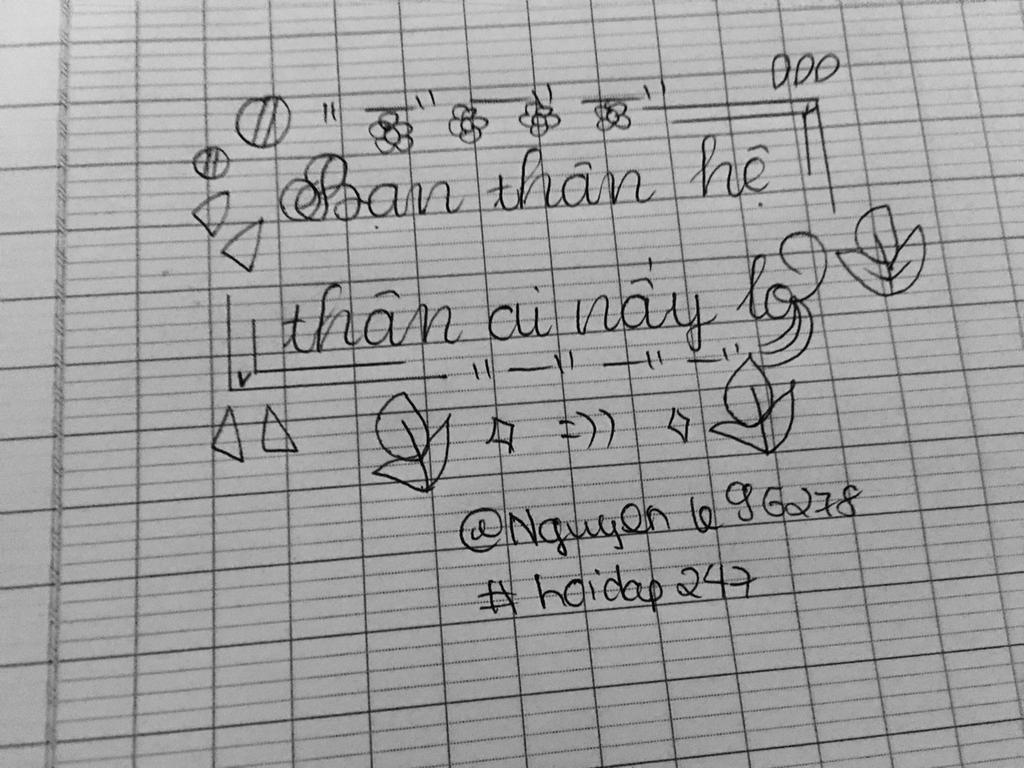 Bạn thân hệ
thân ai nấy lo
=))
@Nguyen le 96278
# hoidap 247